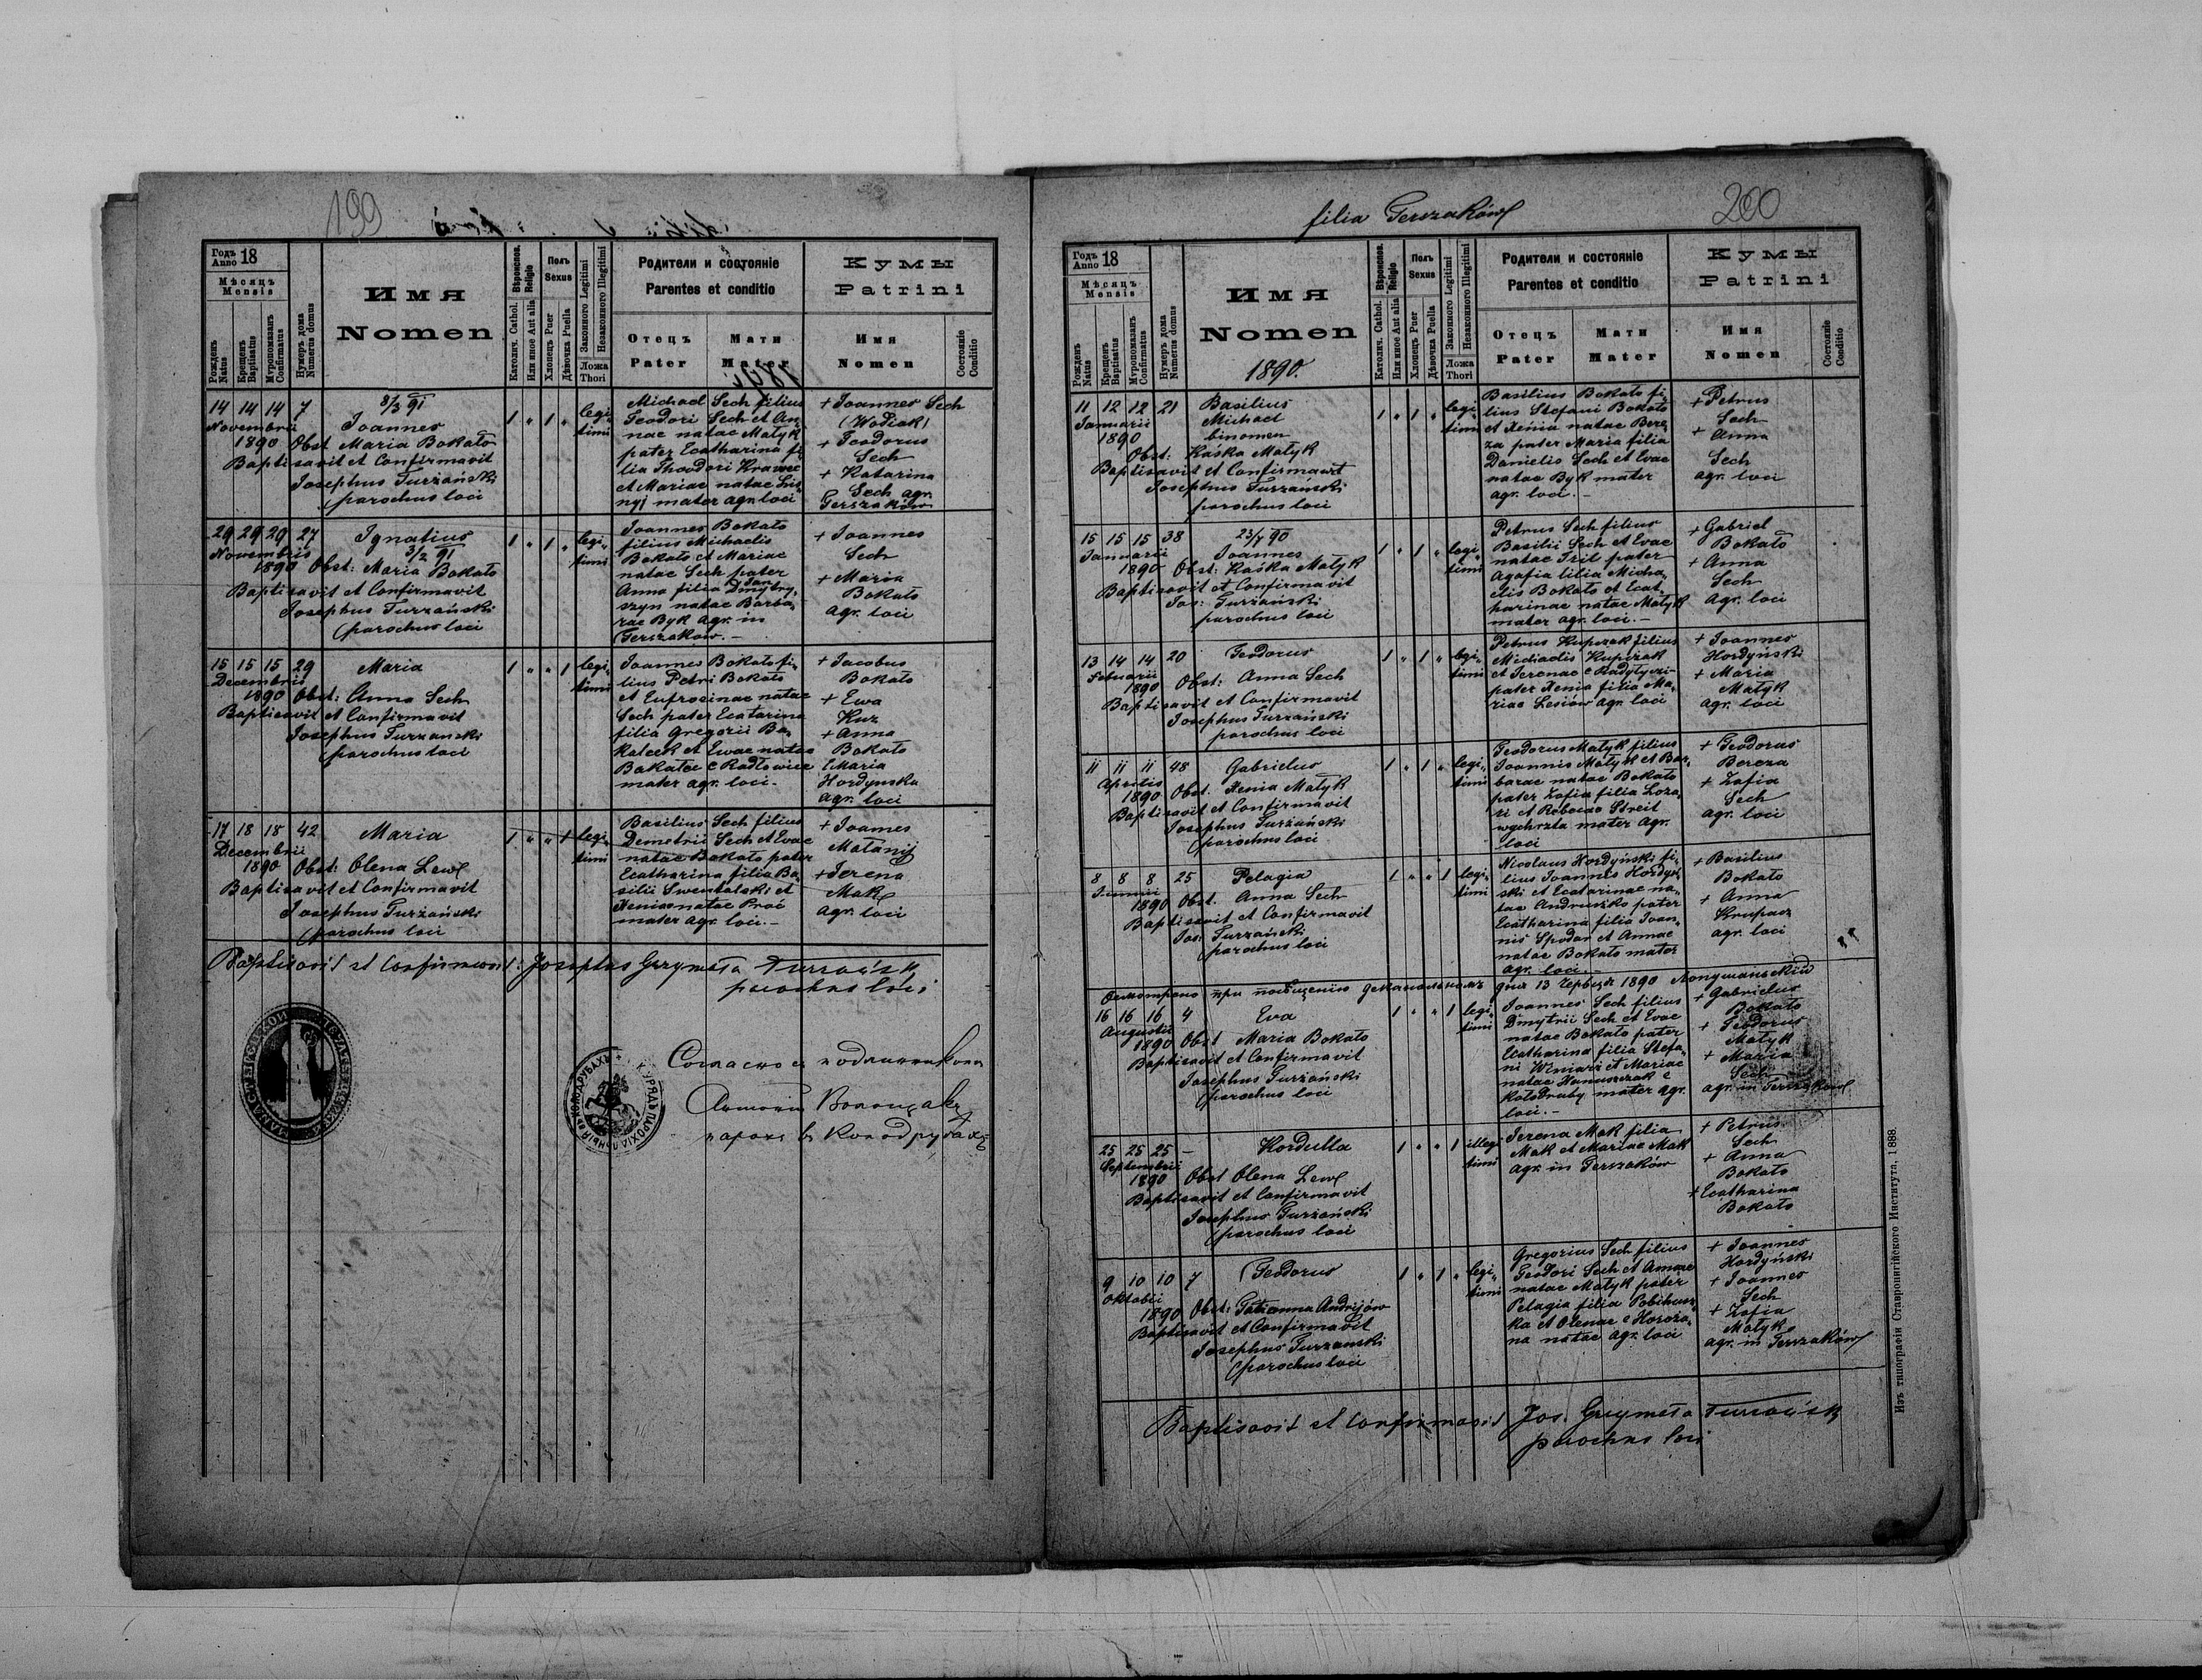 199
Годъ Anno 18
Мѣсяцъ Mensis
Рожденъ Natus
Крещенъ Baptisatus
Мѵропомазанъ Confirmatus
Нумеръ дома Numerus domus
Имя
Nomen
Вѣроиспов. Religio
Католич. Cathol.
Или иное Aut alia
Полъ Sexus
Хлопецъ Puer
Дѣвочка Puella
Законного Legitimi
Незаконного Illegitimi
Ложа Thori
Родители и состояніе
Parentes et conditio
Отецъ Pater
Мати Mater
Кумы
Patrini
Имя Nomen
Состояніе Conditio
14 14 14 7
Novembrii
1890
8/3 91
Joannes
Obst Maria Bokało
Baptisavit et Confirmavit
Josephus Turzański
parochus loci
1 " 1 "
legi-
timi
Michael Sech filius
Teodori Sech et An-
nae natae Matyk
pater Ecatharina fi-
lia Theodori Krawec
et Mariae natae
mater agr. loci
+ Joannes Sech
(Wodiak)
+ Teodorus
Sech
+ Katarina
Sech agr.
Terszaków
29 29 29 27
Novembris
1890
Ignatius
3/2 91
Obst: Maria Bokało
Baptisavit et Confirmavit
Josephus Turzański
parochus loci
1 " 1 "
legi-
timi
Joannes Bokało
filius Michaelis
Bokało et Mariae
natae Sech pater
Anna filia Jan Dmytry-
szyn natae Barba-
rae Byk agr. in
Terszakow. –
+ Joannes
Sech
+ Maria
Bokało
agr. loci
15 15 15 29
Decembris
1890
Maria
Obst: Anna Sech
Baptisavit et Confirmavit
Josephus Turzanski
parochus loci
1 " " 1
legi-
timi
Joannes Bokało fi-
lius Petri Bokało
et Eufrosinae natae
Sech pater Ecatarina
filia Gregorii
et Ewae natae
Bokałec e Radłowice
mater agr. loci –
+ Jacobus
Bokało
+ Ewa
Kuz
+ Anna
Bokało
Maria
Hordynska
agr. loci
17 18 18 42
Decembrii
1890
Maria
Obst: Olena Lewl
Baptisavit et Confirmavit
Josephus Turzański
parochus loci
1 " " 1
legi-
timi
Basilius Sech filius
Demetrii Sech et Evae
natae Bokało pater
Ecatharina filia Ba-
silii et
Xeniae natae Proć
mater agr. loci –
+ Joannes
Matanij
+ Jerena
Mak
agr. loci
Baptisavit et Confirmavit: Josephus Grzymała Turzański
parochus loci
Согласно съ подлинникомъ
Антоній
парохъ въ Колодрубахъ
УРЯДЪ ПАРОХІАЛЬНЫЙ въ КОЛОДРУБАХЪ
filia Terszaków
200
Годъ Anno 18
Мѣсяцъ Mensis
Рожденъ Natus
Крещенъ Baptisatus
Мѵропомазанъ Confirmatus
Нумеръ дома Numerus domus
Имя
Nomen
1890.
Вѣроиспов. Religio
Католич. Cathol.
Или иное Aut alia
Полъ Sexus
Хлопецъ Puer
Дѣвочка Puella
Законного Legitimi
Незаконного Illegitimi
Ложа Thori
Родители и состояніе
Parentes et conditio
Отецъ Pater
Мати Mater
Кумы
Patrini
Имя Nomen
Состояніе Conditio
11 12 12 21
Januarii
1890
Basilius
Michael
binomen
Obst: Kaśka Matyk
Baptisavit et Confirmavit
Josephus Turzański
parochus loci
1 " 1 "
legi-
timi
Basilius Bokało fi-
lius Stefani Bokało
et Xenia natae Bere-
za pater Maria filia
Danielis Sech et Evae
natae Byk mater
agr. loci. –
+ Petrus
Sech
+ Anna
Sech
agr. loci
15 15 15 38
Januarii
1890
Joannes
Obst: Kaśka Matyk
Baptisavit et Confirmavit
Jos: Turzański
parochus loci
1 " 1 "
legi-
timi
Petrus Sech filius
Basilii Sech et Evae
natae Iril pater
Agafia filia Micha-
elis Bokało et Ecat-
harinae natae Matyk
mater agr. loci. –
+ Gabriel
Bokało
+ Anna
Sech
agr. loci
13 14 14 20
Febuarii
1890
Teodorus
Obst: Anna Sech
Baptisavit et Confirmavit
Josephus Turzański
parochus loci
1 " 1 "
legi-
timi
Petrus Kupczak filius
Michaelis Kupczak
et Jerenae e
pater Xenia filia Ma-
riae Lesiów agr. loci
+ Joannes
Hordyński
+ Maria
Matyk
agr. loci
11 11 11 48
Aprilis
1890
Gabrielus
Obst. Xenia Matyk
Baptisavit et Confirmavit
Josephus Turzański
parochus loci
1 " 1 "
legi-
timi
Teodorus Matyk filius
Joannis Matyk et Bar-
barae natae Bokało
pater Zofia filia Loza-
ri et Rebecae Streit
wychrzta mater agr.
loci
+ Teodorus
Bereza
+ Zofia
Sech
agr. loci
8 8 8 25
Junii
1890
Pelagia
Obst. Anna Sech
Baptisavit et Confirmavit
Jos: Turzański
parochus loci
1 " " 1
legi-
timi
Nicolaus Hordyński fi-
lius Joannes Hordyń-
ski et Ecatarinae na-
tae Andruszko pater
Ecatharina filia Joan-
nis Spodar et Annae
natae Bokało mater
agr. loci. –
+ Basilius
Bokało
+ Anna
Krupacz
agr. loci
Осмотрено при посѣщенію деканальномъ дня 13 Червця 1890
16 16 16 4
Augusti
1890
Eva
Obst Maria Bokało
Baptisavit et Confirmavit
Josephus Turzański
parochus loci
1 " " 1
legi-
timi
Joannes Sech filius
Dmytrii Sech et Evae
natae Bokało pater
Ecatharina filia Stefa-
ni Winiarz et Mariae
natae Hanuszczak e
Kołodruby mater agr.
loci. –
+ Gabrielus
Bokało
+ Teodorus
Matyk
+ Maria
Sech
agr. in Terszaków
25 25 25 –
Septembrii
1890
Kordulla
Obst Olena Lewl
Baptisavit et Confirmavit
Josephus Turzański
parochus loci
1 " " 1
illegi-
timi
Jerena Mak filia
Mak et Mariae Mak
agr. in Terszaków
+ Petrus
Sech
+ Anna
Bokało
+ Ecatharina
Bokało
9 10 10 7
Oktobii
1890
Teodorus
Obst: Tatianna Andrijów
Baptisavit et Confirmavit
Josephus Turzanski
parochus loci
1 " 1 "
legi-
timi
Gregorius Sech filius
Teodori Sech et Annae
natae Matyk pater
Pelagia filia Pobihusz-
ka et Olenae e Horoża-
na natae agr. loci
+ Joannes
Hordyński
+ Joannes
Sech
+ Zofia
Matyk
agr. in Terszaków
Baptisavit et Confirmavit Jos. Grzymała Turzański
parochus loci
Изъ типографіи Ставропигійского Института, 1888.